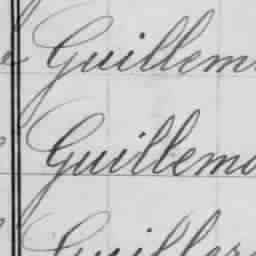 Guillem
Guillema
Guiller